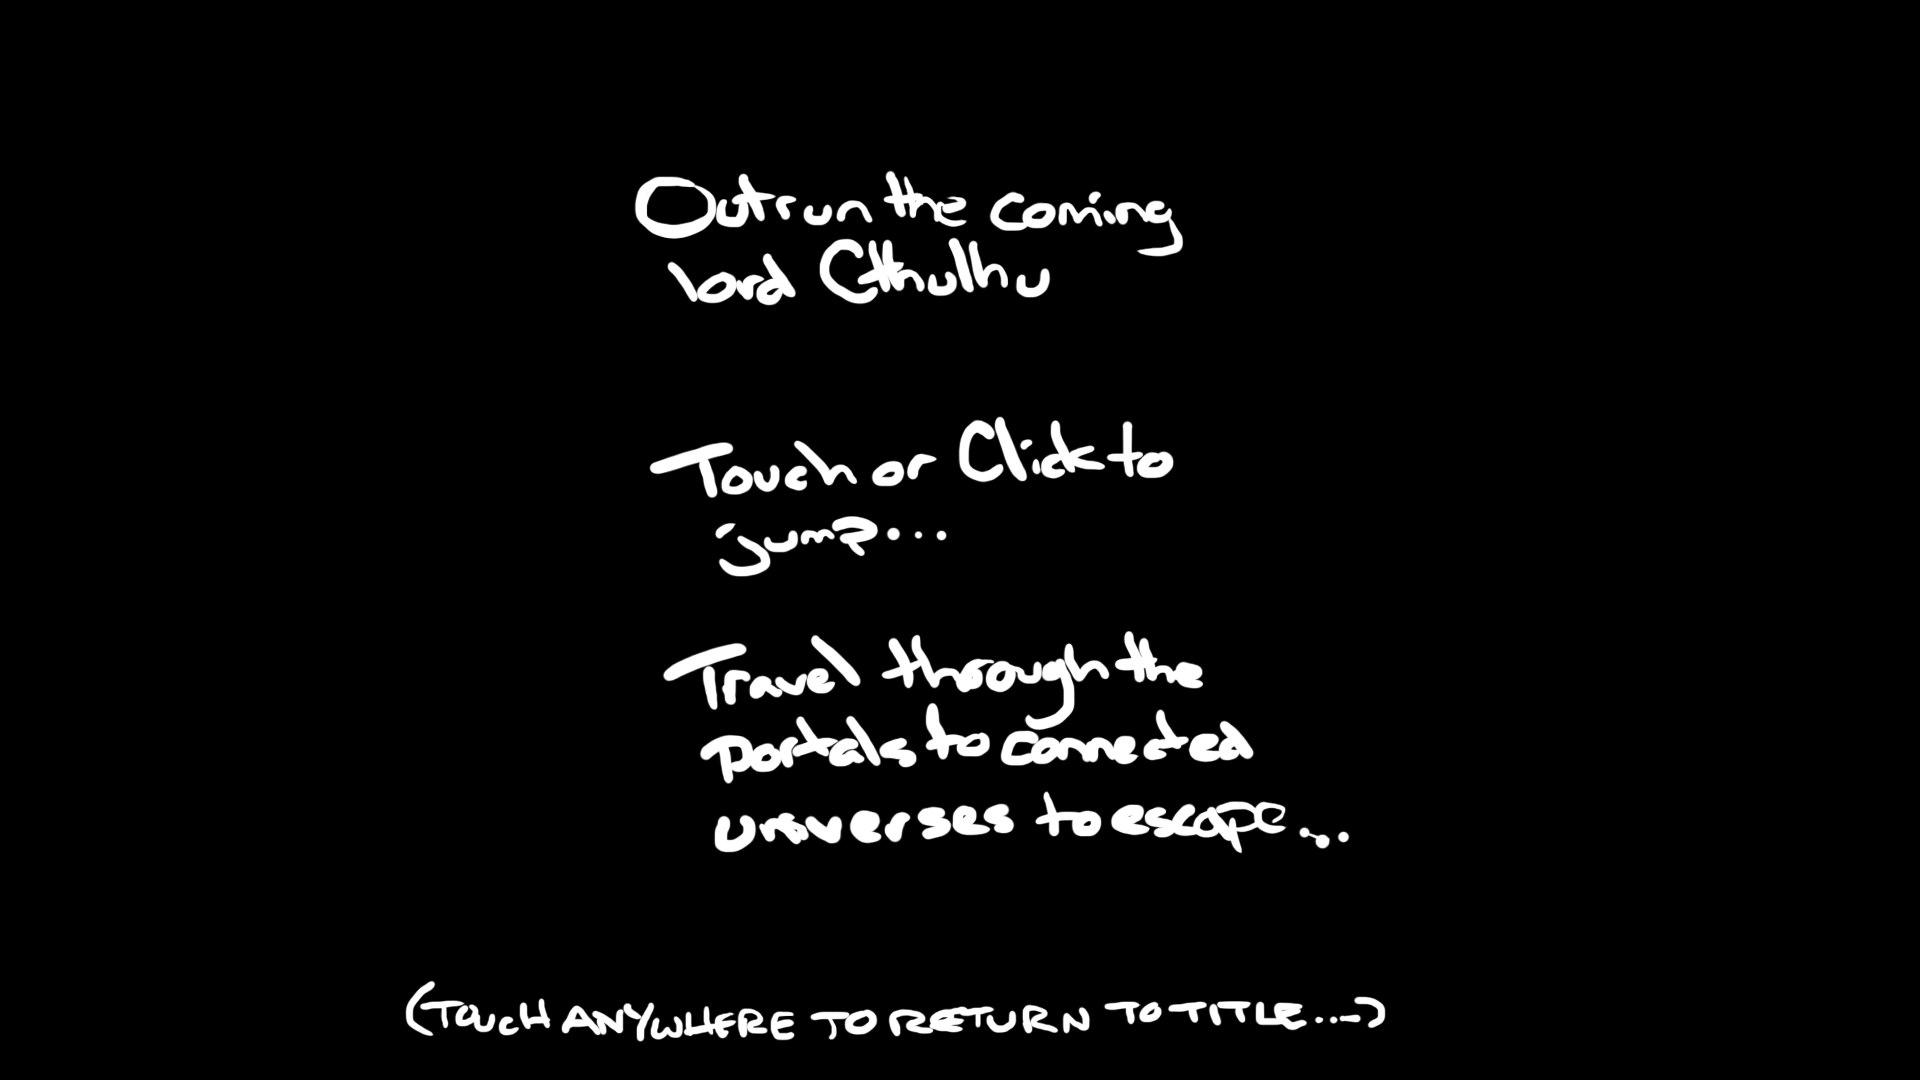 Outrun the coming
lord Cthulhu
Touch or Click to
jump...
Travel through the
portals to connected
universes to escape...
(TOUCH ANYWHERE TO RETURN TO TITLE...)